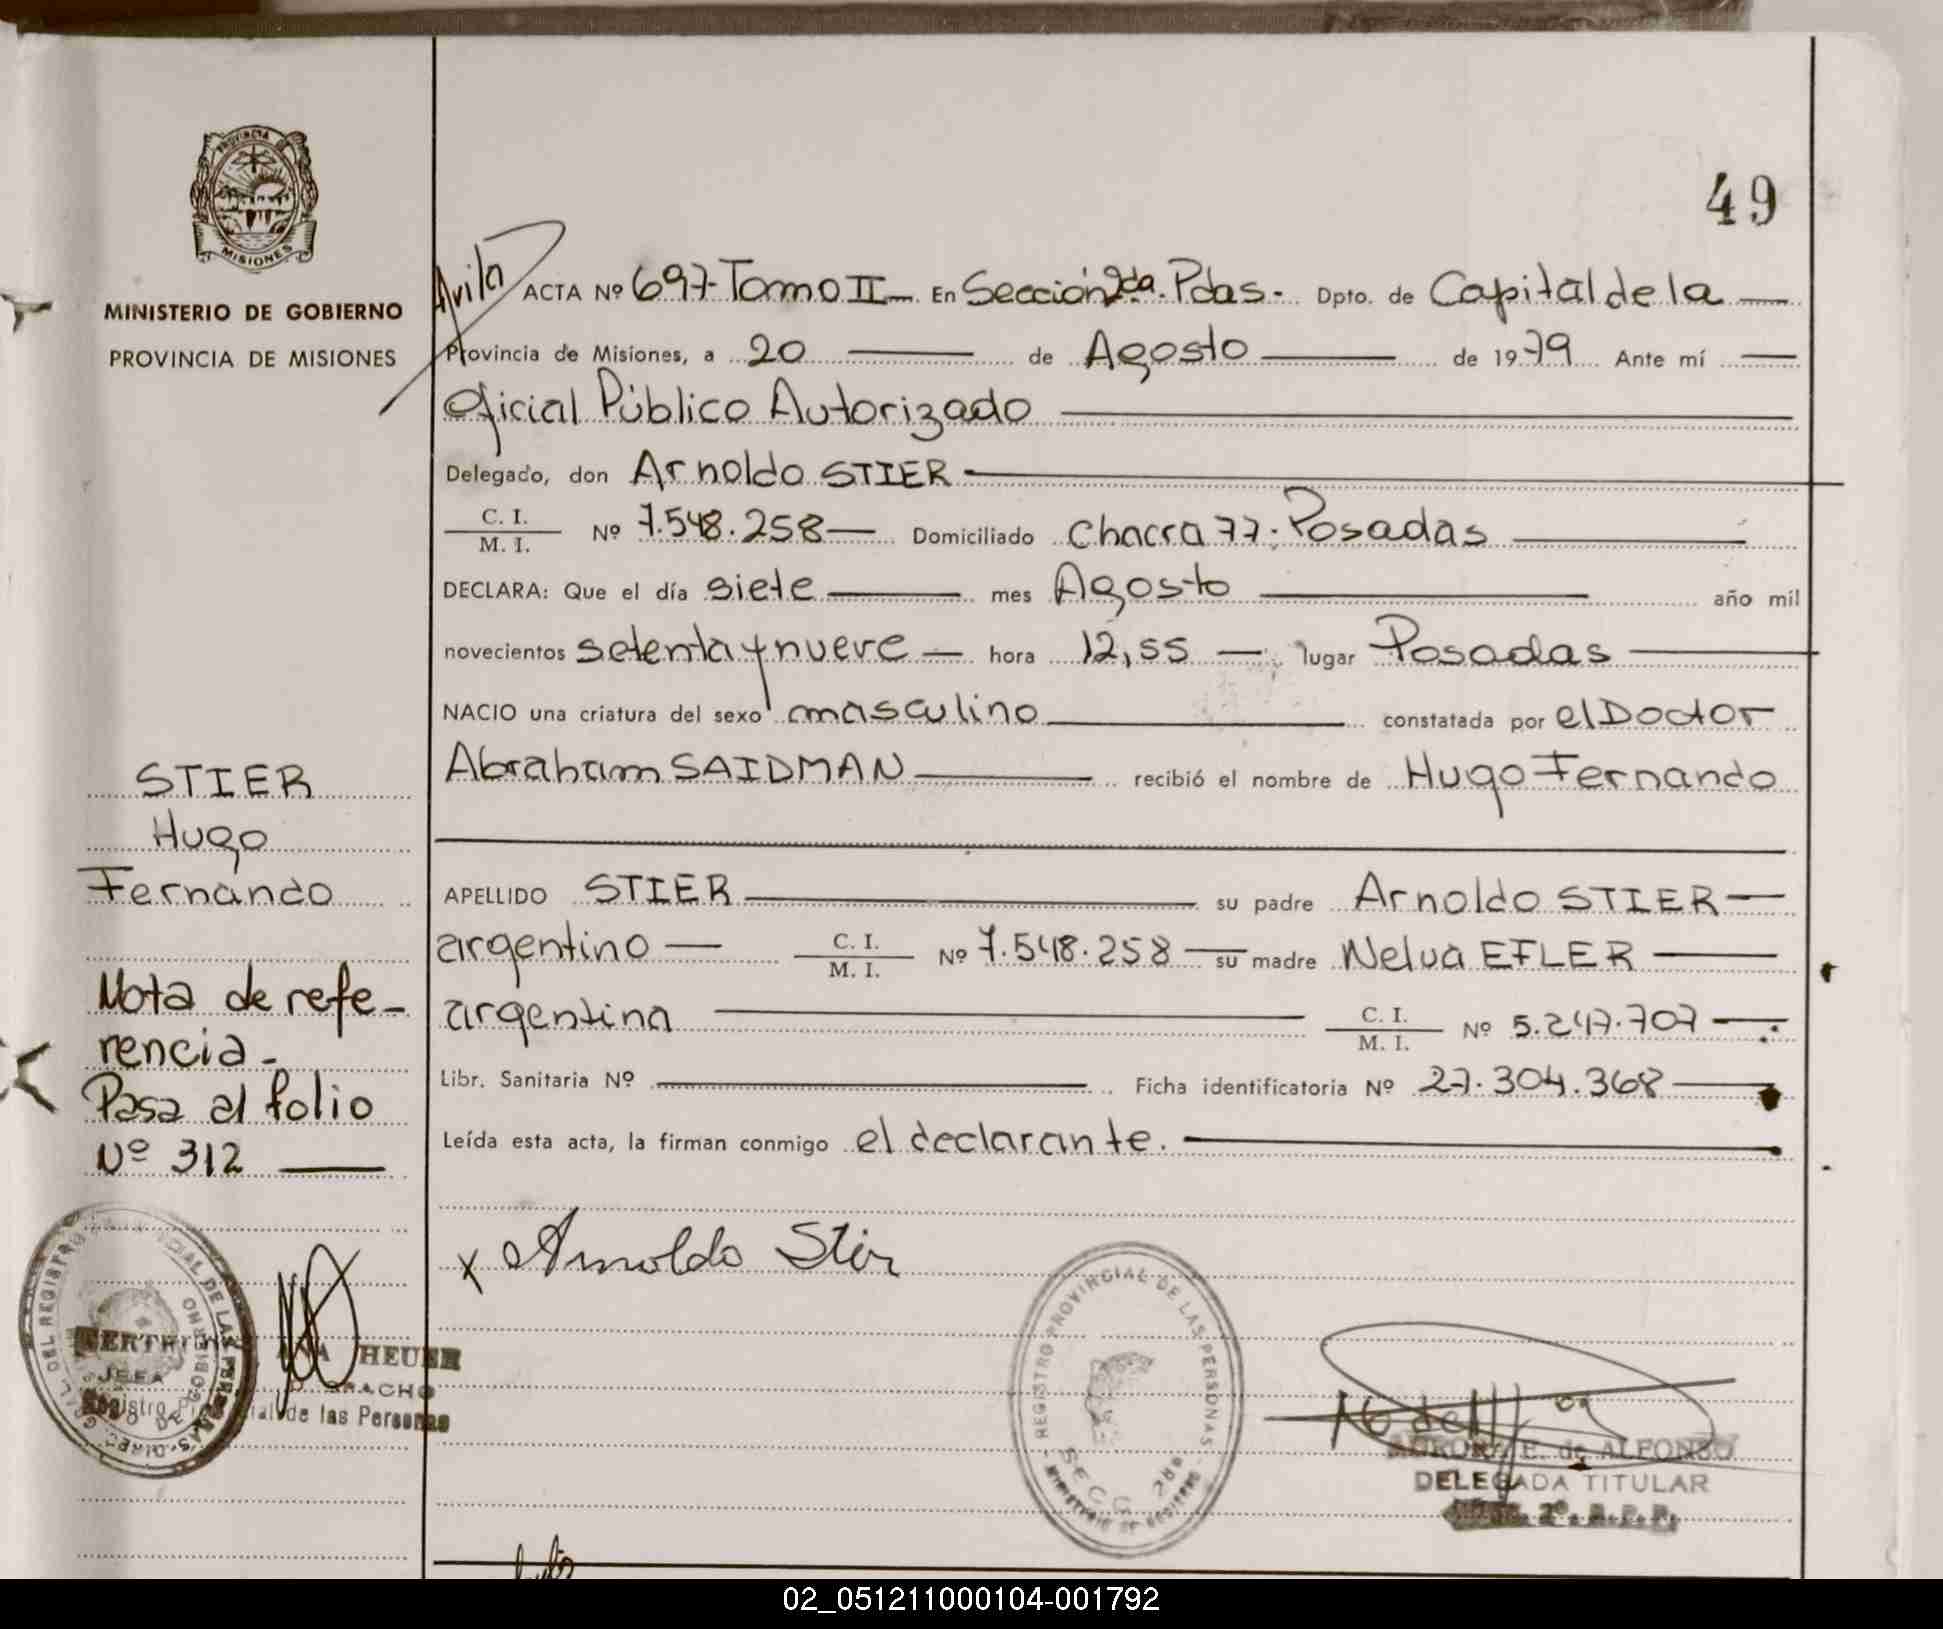 PROVINCIA DE
MISIONES
MINISTERIO DE GOBIERNO
PROVINCIA DE MISIONES
49
Avila
ACTA Nº 697-Tomo II- En Sección 2da. Pdas.- Dpto. de Capital de la
Provincia de Misiones, a 20 de Agosto de 1979 Ante mí
Oficial Público Autorizado
Delegado, don Arnoldo STIER
C. I.
M. I. Nº 7.548.258 Domiciliado Chacra 77. Posadas
DECLARA: Que el día siete mes Agosto año mil
novecientos setenta y nueve hora 12,55 lugar Posadas
NACIO una criatura del sexo masculino constatada por el Doctor
Abraham SAIDMAN recibió el nombre de Hugo Fernando
APELLIDO STIER su padre Arnoldo STIER
argentino C. I.
M. I. Nº 7.548.258 su madre Nelva EFLER
argentina C. I.
M. I. Nº 5.247.707
Libr. Sanitaria Nº Ficha identificatoria Nº 27.304.368
Leída esta acta, la firman conmigo el declarante.
STIER
Hugo
Fernando
Nota de refe-
rencia-
Pasa al folio
Nº 312
x Arnoldo Stier
HEUER
JEFA
Registro Provincial de las Personas
REGISTRO PROVINCIAL DE LAS PERSONAS
SECC. 2da
MINISTERIO DE GOBIERNO
AURORA E. de ALFONSO
DELEGADA TITULAR
02_051211000104-001792